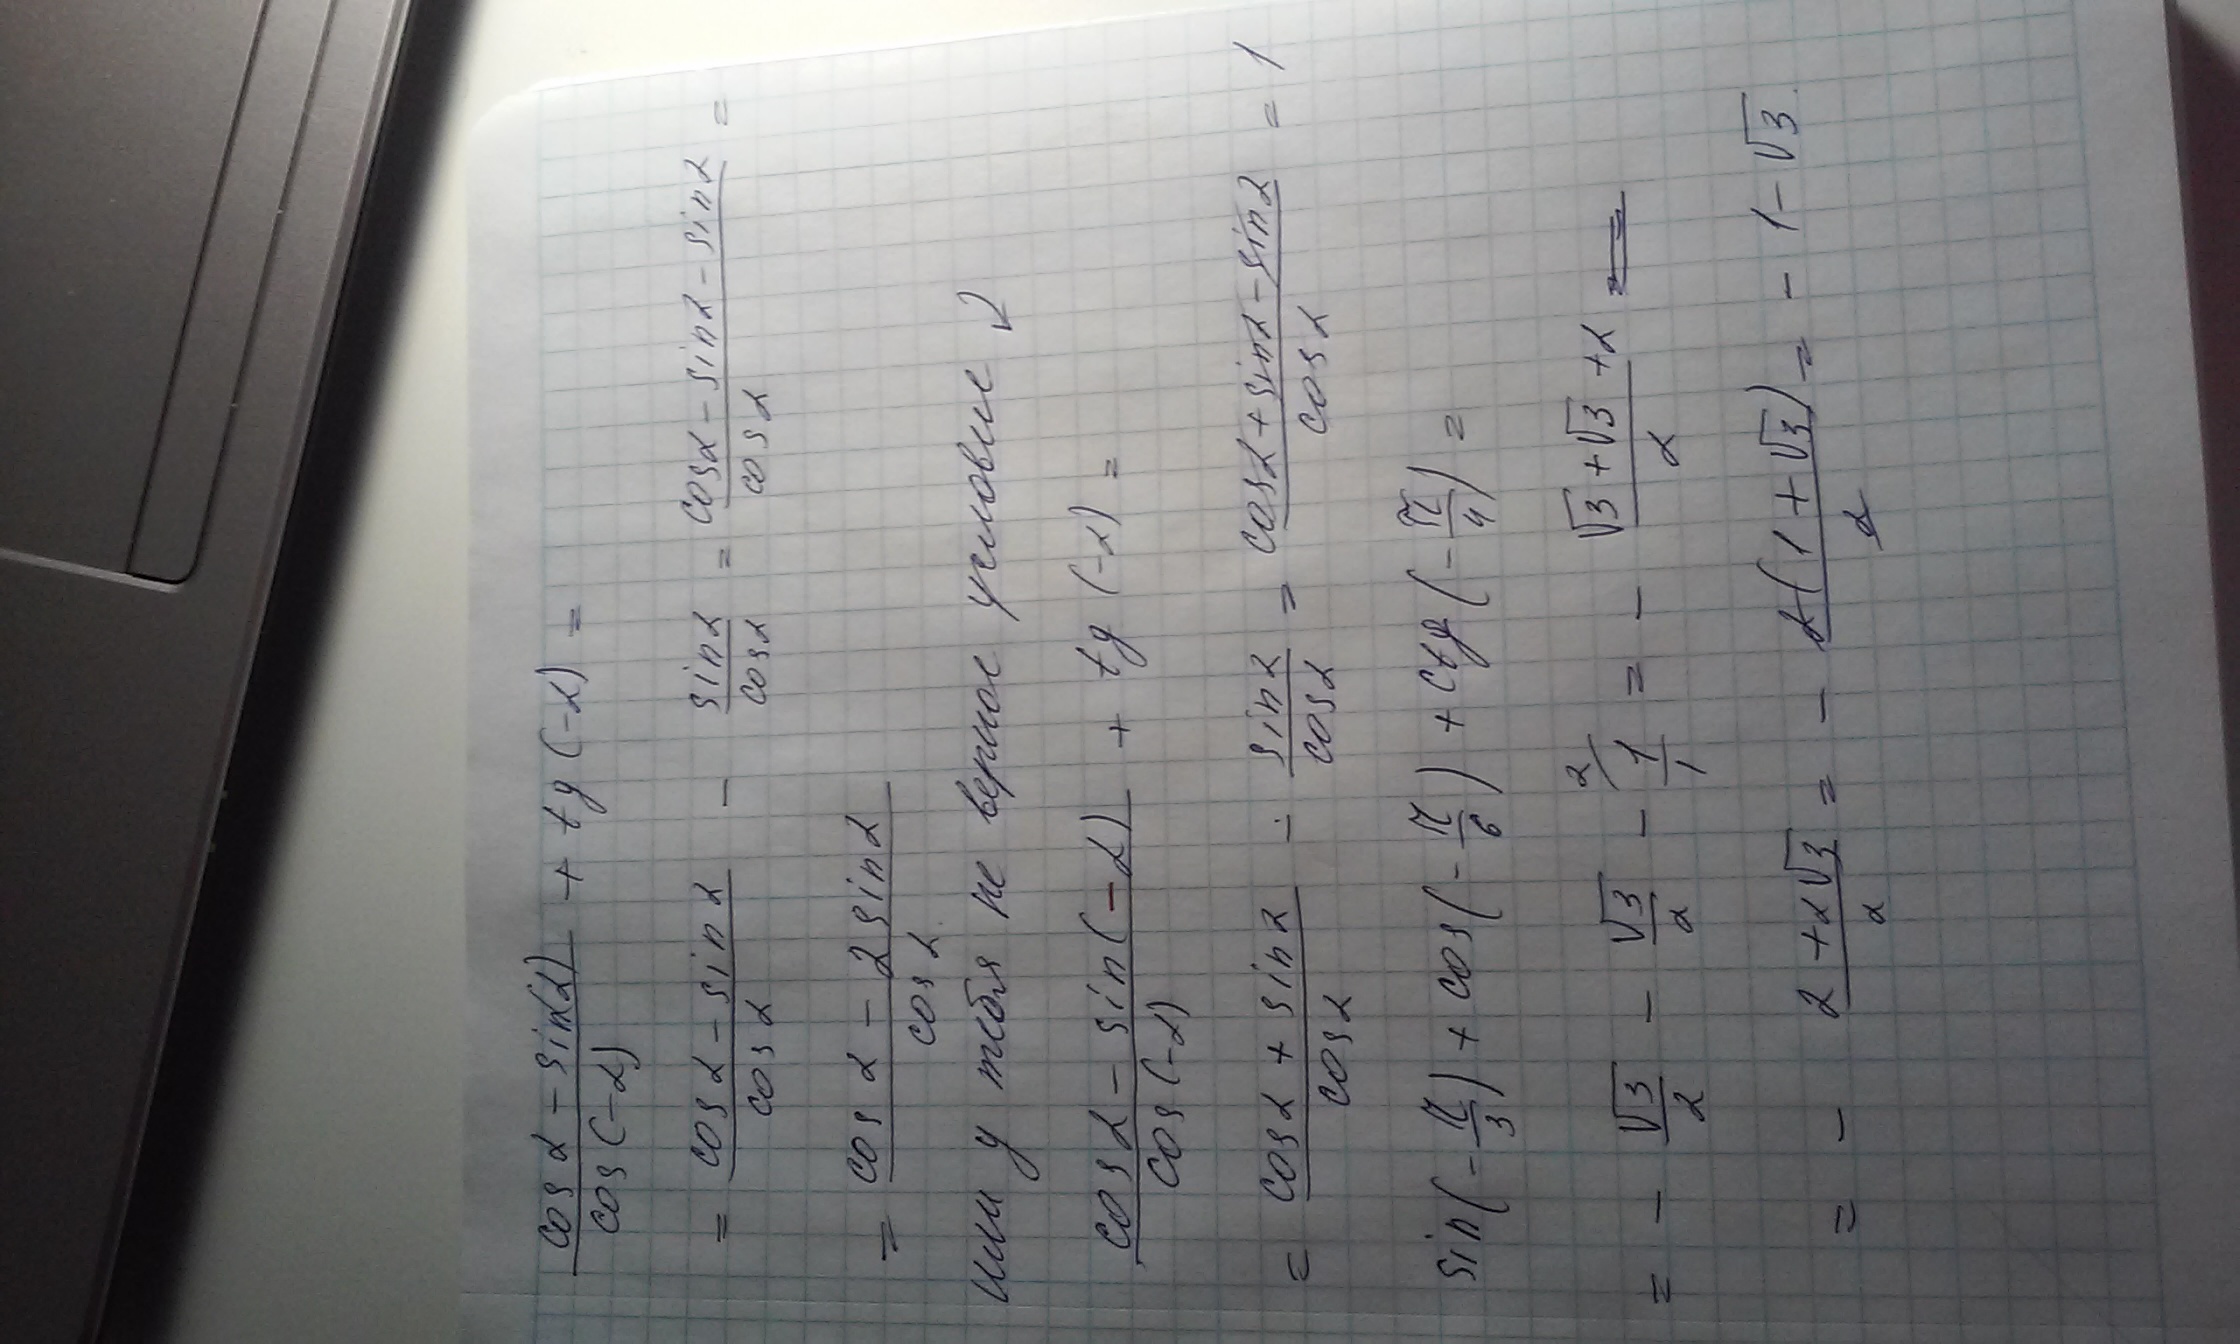 (cos α - sin(α))/(cos(-α)) + tg(-α) =
= (cos α - sin α)/(cos α) - (sin α)/(cos α) = (cos α - sin α - sin α)/(cos α) =
= (cos α - 2 sin α)/(cos α)
или у тебя не верное условие ↓
(cos α - sin(-α))/(cos(-α)) + tg(-α) =
= (cos α + sin α)/(cos α) - (sin α)/(cos α) = (cos α + sin α - sin α)/(cos α) = 1
sin(-π/3) + cos(-π/6) + ctg(-π/4) =
= - √3/2 - √3/2 - 1/1 = - (√3 + √3 + 2)/2 =
= - (2 + 2√3)/2 = - 2(1 + √3)/2 = - 1 - √3.